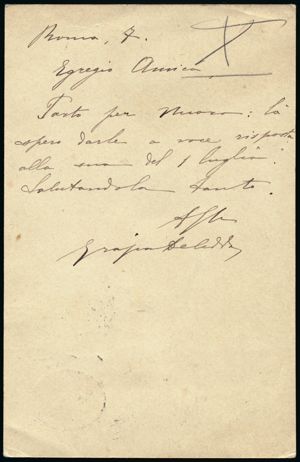 Roma, 7.
Egregio Amico,
Parto per Nuoro: là
spero darle a voce risposta
alla sua del 1 luglio.
Salutandola tanto.
Grazia Deledda